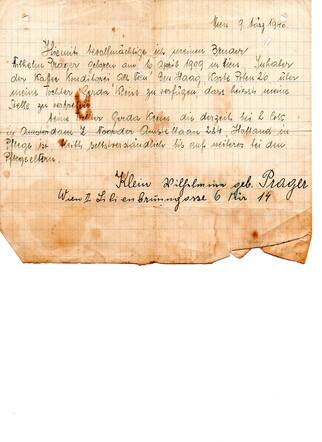 Wien 9 März 1940.
Hiermit bevollmächtige ich meinen Bruder
Wilhelm Prager geboren am 16 April 1909 in Wien, Inhaber
der Kaffee Konditorei Alt Wien Den Haag, Korte Poten 20, über
meine Tochter Gerda Klein zu verfügen, das heisst meine
Stelle zu vertreten.
Meine Tochter Gerda Klein die derzeit bei
in Amsterdam Z Noorder Amstellaan 224, Holland in
Pflege ist bleibt selbstverständlich bis auf weiteres bei den
Pflegeeltern.
Klein Wilhelmine geb. Prager
Wien II Lilienbrunngasse 6 Tür 14